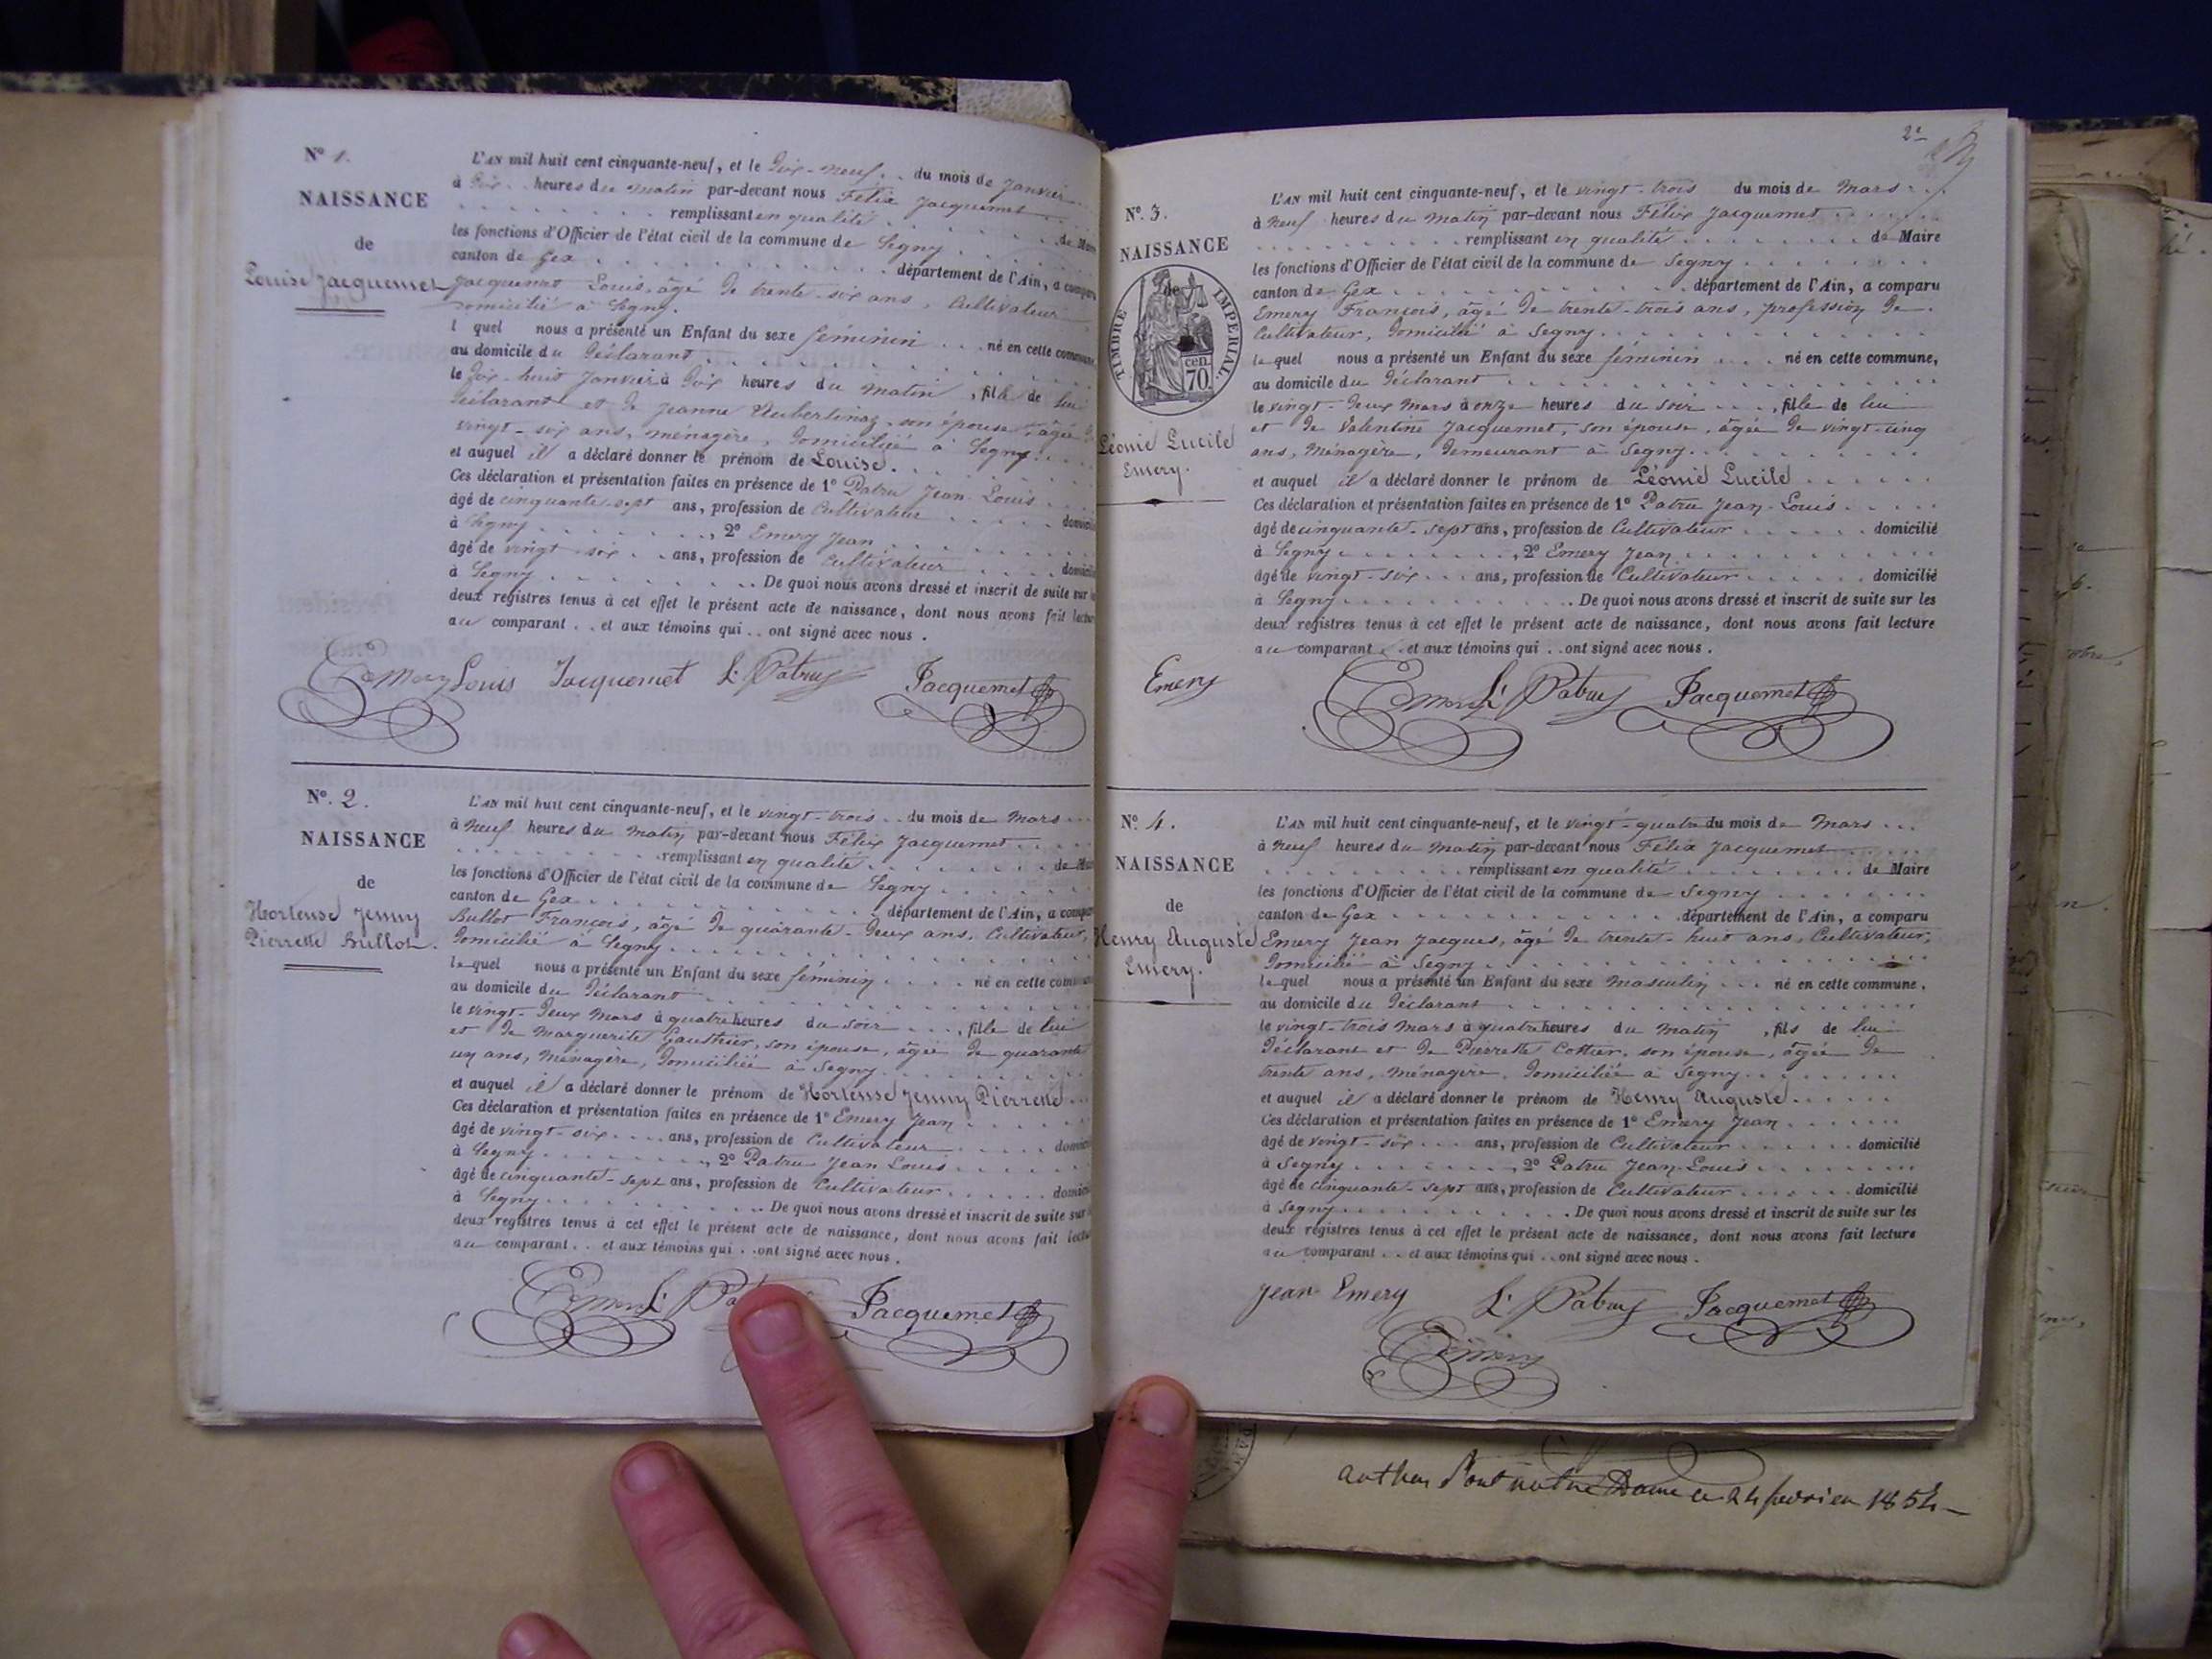 Nº 1.
NAISSANCE
de
Louise Jacquemet
L'AN mil huit cent cinquante-neuf, et le dix-neuf . . du mois de Janvier . .
à dix . . heures du matin par-devant nous Félix Jacquemet . .
. . . . . . . . remplissant en qualité . . . . . . . . de Maire
les fonctions d'Officier de l'état civil de la commune de Segny . . . .
canton de Gex . . . . . . . . département de l'Ain, a comparu
Jacquemet Louis, âgé de trente-six ans, Cultivateur
domicilié à Segny.
l quel nous a présenté un Enfant du sexe féminin . . . né en cette commune
au domicile du déclarant . . . . . . . .
le dix-huit Janvier à dix heures du matin , fille de lui
déclarant et de Jeanne Aubertinaz, son épouse, âgée de
vingt-six ans, ménagère, domiciliée à Segny . . .
et auquel il a déclaré donner le prénom de Louise . .
Ces déclaration et présentation faites en présence de 1º Patru Jean-Louis . . .
âgé de cinquante-sept ans, profession de Cultivateur . . . . . domicilié
à Segny . . . . . . . . , 2º Emery Jean . . . . . .
âgé de vingt-six . . ans, profession de Cultivateur . . . . . domicilié
à Segny . . . . . . . . De quoi nous avons dressé et inscrit de suite sur les
deux registres tenus à cet effet le présent acte de naissance, dont nous avons fait lecture
au comparant . . et aux témoins qui . . ont signé avec nous .
Emery Louis Jacquemet L. Patru Jacquemet
Nº. 2.
NAISSANCE
de
Hortense Jenny
Pierrette Bullot.
L'AN mil huit cent cinquante-neuf, et le vingt-trois . . du mois de Mars . . .
à neuf heures du matin par-devant nous Félix Jacquemet . . . .
. . . . . . . . remplissant en qualité . . . . . . . . de Maire
les fonctions d'Officier de l'état civil de la commune de Segny . . . . .
canton de Gex . . . . . . . . département de l'Ain, a comparu
Bullot François, âgé de quarante-deux ans, Cultivateur,
domicilié à Segny . . . . . . . .
le quel nous a présenté un Enfant du sexe féminin . . . . né en cette commune
au domicile du déclarant . . . . . . . .
le vingt-deux Mars à quatre heures du soir . . . , fille de lui
et de Marguerite Gauthier, son épouse, âgée de quarante
un ans, ménagère, domiciliée à Segny . . . . . .
et auquel il a déclaré donner le prénom de Hortense Jenny Pierrette . .
Ces déclaration et présentation faites en présence de 1º Emery Jean . . . . . .
âgé de vingt-six . . . . ans, profession de Cultivateur . . . . . domicilié
à Segny . . . . . . . . , 2º Patru Jean Louis . . . . .
âgé de cinquante-sept ans, profession de Cultivateur . . . . . . domicilié
à Segny . . . . . . . . De quoi nous avons dressé et inscrit de suite sur
deux registres tenus à cet effet le présent acte de naissance, dont nous avons fait lecture
au comparant . . et aux témoins qui . . ont signé avec nous .
Emery L. Pa Jacquemet
2e
Nº. 3.
NAISSANCE
de
TIMBRE IMPERIAL
70 cen
Léonie Lucile
Emery.
L'AN mil huit cent cinquante-neuf, et le vingt-trois du mois de Mars . .
à neuf heures du matin par-devant nous Félix Jacquemet . . . . .
. . . . . . . . remplissant en qualité . . . . . . . . de Maire
les fonctions d'Officier de l'état civil de la commune de Segny . . . . . .
canton de Gex . . . . . . . . département de l'Ain, a comparu
Emery François, âgé de trente-trois ans, profession de
Cultivateur, domicilié à Segny . . . . . . . .
le quel nous a présenté un Enfant du sexe féminin . . . . né en cette commune,
au domicile du déclarant . . . . . . . .
le vingt-deux Mars à onze heures du soir . . . , fille de lui
et de Valentine Jacquemet, son épouse, âgée de vingt-cinq
ans, ménagère, demeurant à Segny . . . . . . . .
et auquel il a déclaré donner le prénom de Léonie Lucile . . . . . .
Ces déclaration et présentation faites en présence de 1º Patru Jean-Louis . . . . .
âgé de cinquante-sept ans, profession de Cultivateur . . . . . domicilié
à Segny . . . . . . . . , 2º Emery Jean . . . . . . . .
âgé de vingt-six . . . ans, profession de Cultivateur . . . . . . domicilié
à Segny . . . . . . . . De quoi nous avons dressé et inscrit de suite sur les
deux registres tenus à cet effet le présent acte de naissance, dont nous avons fait lecture
au comparant . . et aux témoins qui . . ont signé avec nous .
Emery Emery L. Patru Jacquemet
Nº. 4.
NAISSANCE
de
Henry Auguste
Emery.
L'AN mil huit cent cinquante-neuf, et le vingt-quatre du mois de Mars . . .
à neuf heures du matin par-devant nous Félix Jacquemet . . . . .
. . . . . . . . remplissant en qualité . . . . . . . . de Maire
les fonctions d'Officier de l'état civil de la commune de Segny . . . . . .
canton de Gex . . . . . . . . département de l'Ain, a comparu
Emery Jean Jacques, âgé de trente-huit ans, Cultivateur,
domicilié à Segny . . . . . . . .
le quel nous a présenté un Enfant du sexe masculin . . . né en cette commune,
au domicile du déclarant . . . . . . . .
le vingt-trois Mars à quatre heures du matin , fils de lui
déclarant et de Pierrette Cottier, son épouse, âgée de
trente ans, ménagère, domiciliée à Segny . . . . . .
et auquel il a déclaré donner le prénom de Henry Auguste . . . . . .
Ces déclaration et présentation faites en présence de 1º Emery Jean . . . . . .
âgé de vingt-six . . . ans, profession de Cultivateur . . . . . . domicilié
à Segny . . . . . . . . , 2º Patru Jean-Louis . . . . . .
âgé de cinquante-sept ans, profession de Cultivateur . . . . . . domicilié
à Segny . . . . . . . . De quoi nous avons dressé et inscrit de suite sur les
deux registres tenus à cet effet le présent acte de naissance, dont nous avons fait lecture
au comparant . . et aux témoins qui . . ont signé avec nous .
Jean Emery L. Patru Jacquemet
Emery
notre Dame ce 24 fevrier 1854